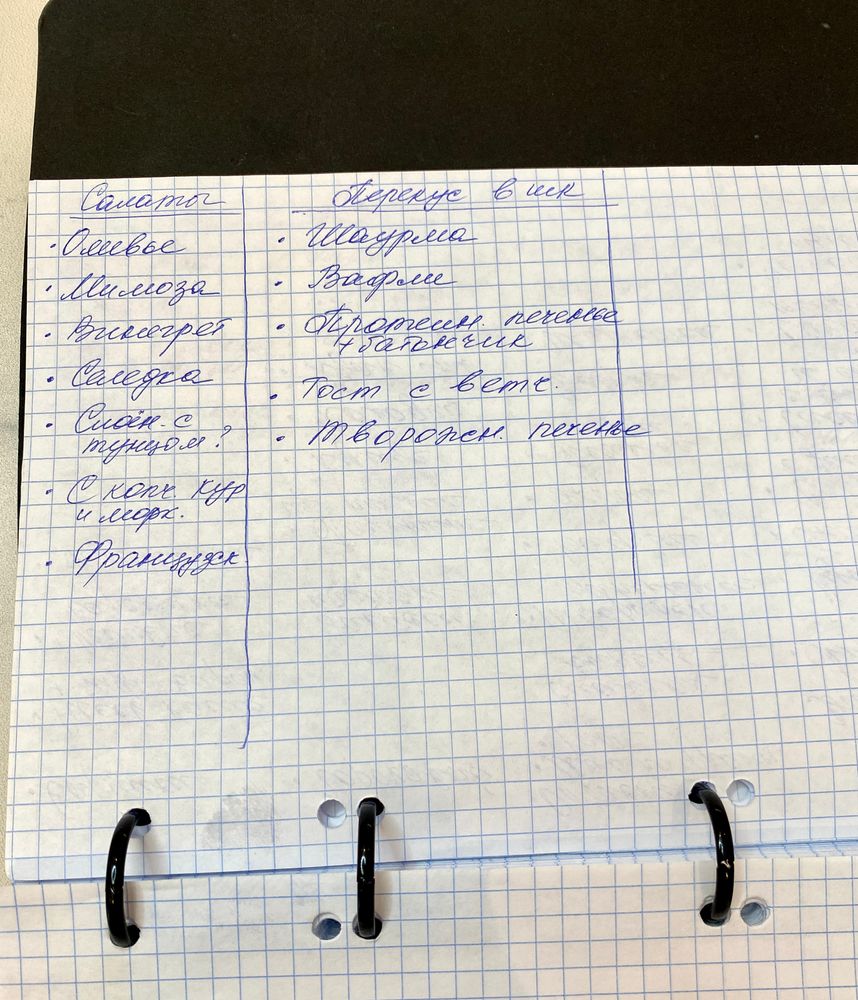 Салаты
• Оливье
• Мимоза
• Винегрет
• Селедка
• Слоён. с
тунцом?
• С копч. кур
и морк.
• Французск.
Перекус в шк
• Шаурма
• Вафли
• Протеин. печенье
+ батончик
• Тост с ветч.
• Творожн. печенье